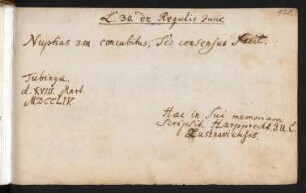 L. 30. de Regulis Juris
Nuptias non concubitus, sed consensus facit.
Tubingæ
d. XVIII. Mart.
MDCCLIV.
Hæc in sui memoriam
scripsit Harpprecht. J.U.C.